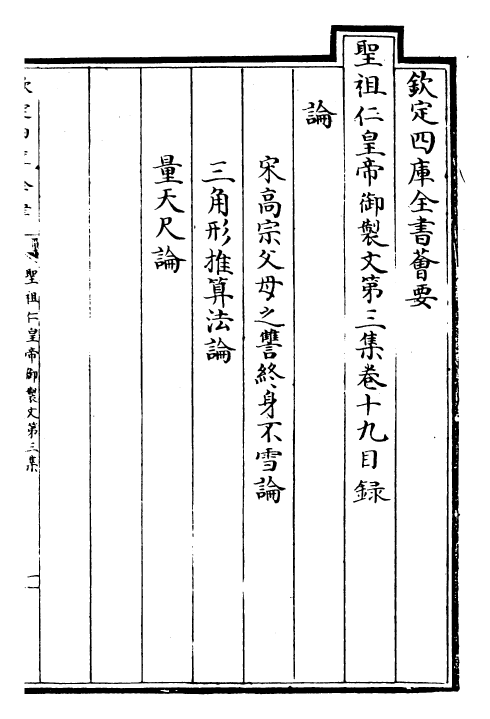 欽定四庫全書薈要
聖祖仁皇帝御製文第三集卷十九目録
論
宋高宗父母之讐終身不雪論
三角形推算法論
量天尺論
聖祖仁皇帝御製文第三集
一